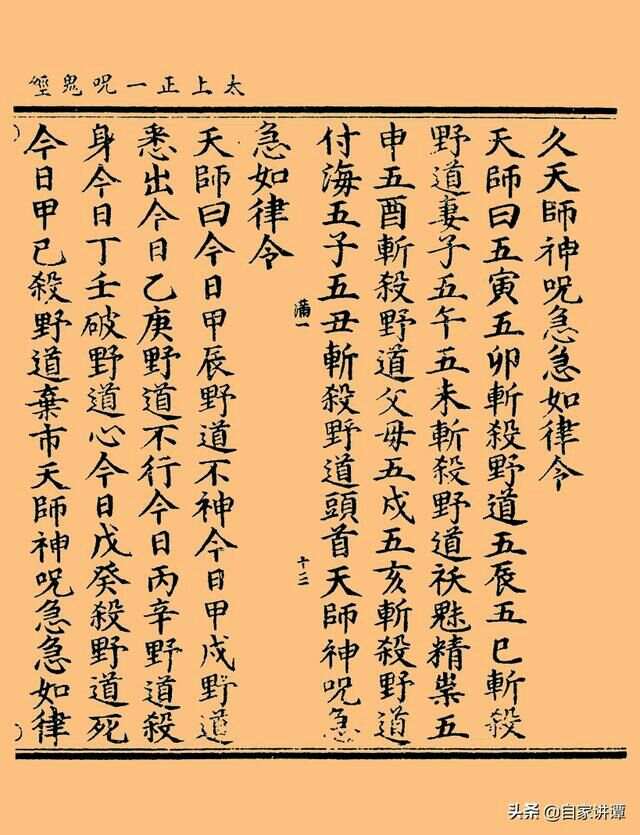 太上正一呪鬼經
久天師神呪急急如律令
天師曰五寅五卯斬殺野道五辰五巳斬殺
野道妻子五午五未斬殺野道祅魅精祟五
申五酉斬殺野道父母五戌五亥斬殺野道
付海五子五丑斬殺野道頭首天師神呪急
滿一
十三
急如律令
天師曰今日甲辰野道不神今日甲戌野道
悉出今日乙庚野道不行今日丙辛野道殺
身今日丁壬破野道心今日戊癸殺野道死
今日甲巳殺野道棄市天師神呪急急如律
头条 @自家讲谭